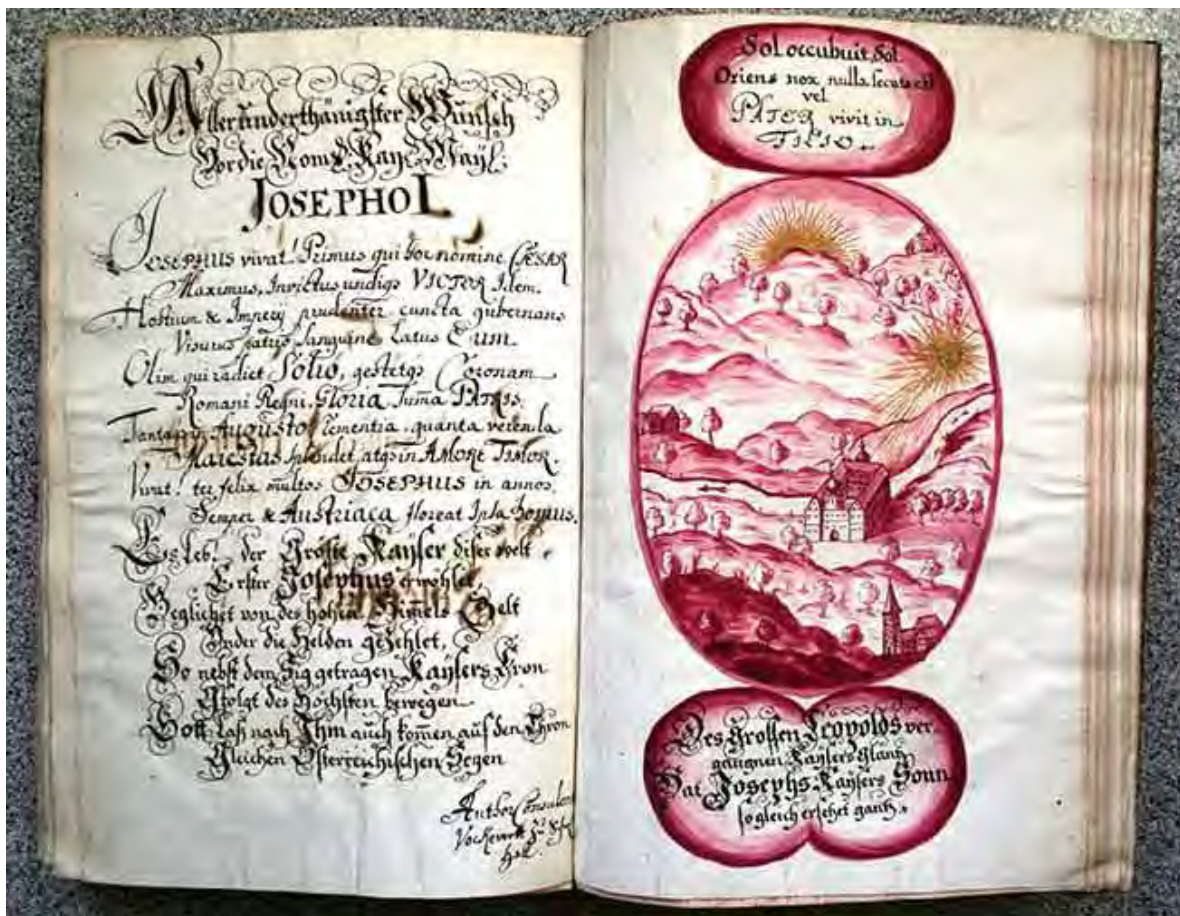 Allerunderthänigster Wunsch
Vor die Röm: Kay: Mayl:
JOSEPHO I.
JOSEPHUS vivat! Primus qui hoc nomine CÆSAR
Maximus, Invictus undiqs VICTOR Idem.
Hostium & Impery prudenter cuncta gubernans
Visurus patrio Sanguine Latus Eum
Olim qui radiet Solio, gestetqs Coronam
Romani Regni, Gloria summa PATRIS.
Tanta in AUGUSTO Clementia, quanta verenda
Maiestas splendet, atqs in AMORE TIMOR.
Vivat! ter felix multos JOSEPHUS in annos,
Semper & Austriaca floreat Ipsa Domus.
Es leb! der Gröste Kayser diser welt
Erster Josephus erwöhlet,
Beglicket von des hohen Himels Zelt
Under die Helden gezehlet,
So nebst dem Sig getragen Kaysers Cron
Ifolgt des Höchsten bewegen
Gott laß nach Ihm auch komen auf den Thron
Gleichen Österreichischen Segen
Author Consulens
Sol occubuit, Sol
Oriens nox nulla secuta est
vel
PATER vivit in
FILIO.
Des Grossen Leopolds ver
gangnen Kaysers Glantz
Hat Josephs Kaysers Sonn
so gleich ersetzet gantz.